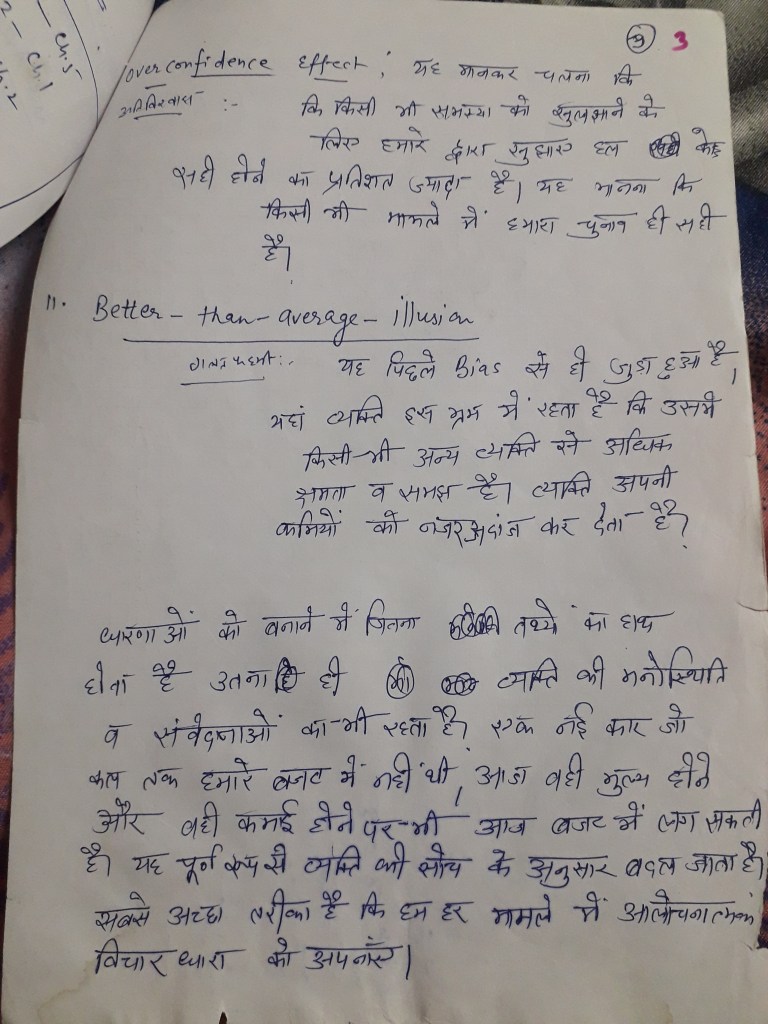 2 -
Ch.5
- Ch.1
Ch.2
9 3
Overconfidence Effect : यह मानकर चलना कि
अतिविश्वास :- कि किसी भी समस्या को सुलझाने के
लिए हमारे द्वारा सुझाए हल के
सही होने का प्रतिशत ज्यादा है। यह मानना कि
किसी भी मामले में हमारा चुनाव ही सही
है।
11. Better-than-average-illusion
गलतफहमी :- यह पिछले Bias से ही जुड़ा हुआ है,
यहां व्यक्ति इस भ्रम में रहता है कि उसमें
किसी भी अन्य व्यक्ति से अधिक
क्षमता व समझ है। व्यक्ति अपनी
कमियों को नजरअदांज कर देता है।
धारणाओं को बनाने में जितना तथ्यों का हाथ
होता है उतना ही व्यक्ति की मनोस्थिति
व संवेदनाओं का भी रहता है। एक नई कार जो
कल तक हमारे बजट में नहीं थी, आज वही मुल्य होने
और वही कमाई होने पर भी आज बजट में लग सकती
है। यह पूर्ण रूप से व्यक्ति की सोच के अनुसार बदल जाता है।
सबसे अच्छा तरीका है कि हम हर मामले में आलोचनात्मक
विचार धारा को अपनाएं।